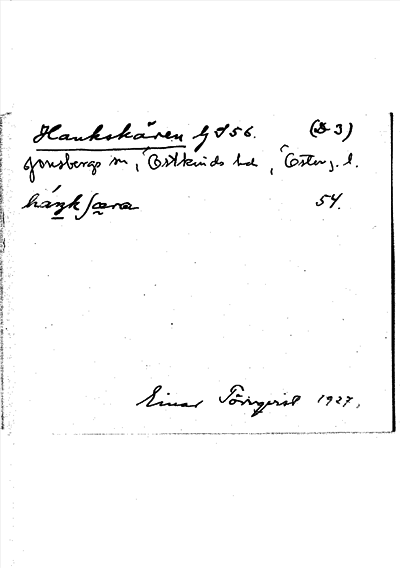 Hankskären G I 56. (D 3)
Jonsbergs sn, Östkinds hd, Österg. l.
háŋkʃæra 54.
Einar Törnqvist 1927.